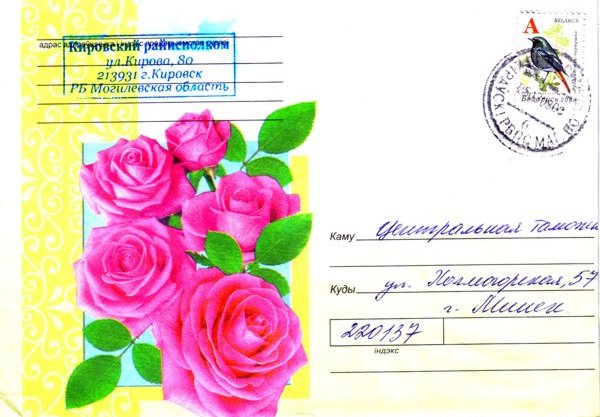 адрас
Кировский райисполком
ул.Кирова, 80
213931 г.Кировск
РБ Могилевская область
A
BELARUS
Беларусь
Каму Центральная
Куды ул. Холмогорская, 57
г. Минск.
220137
індэкс